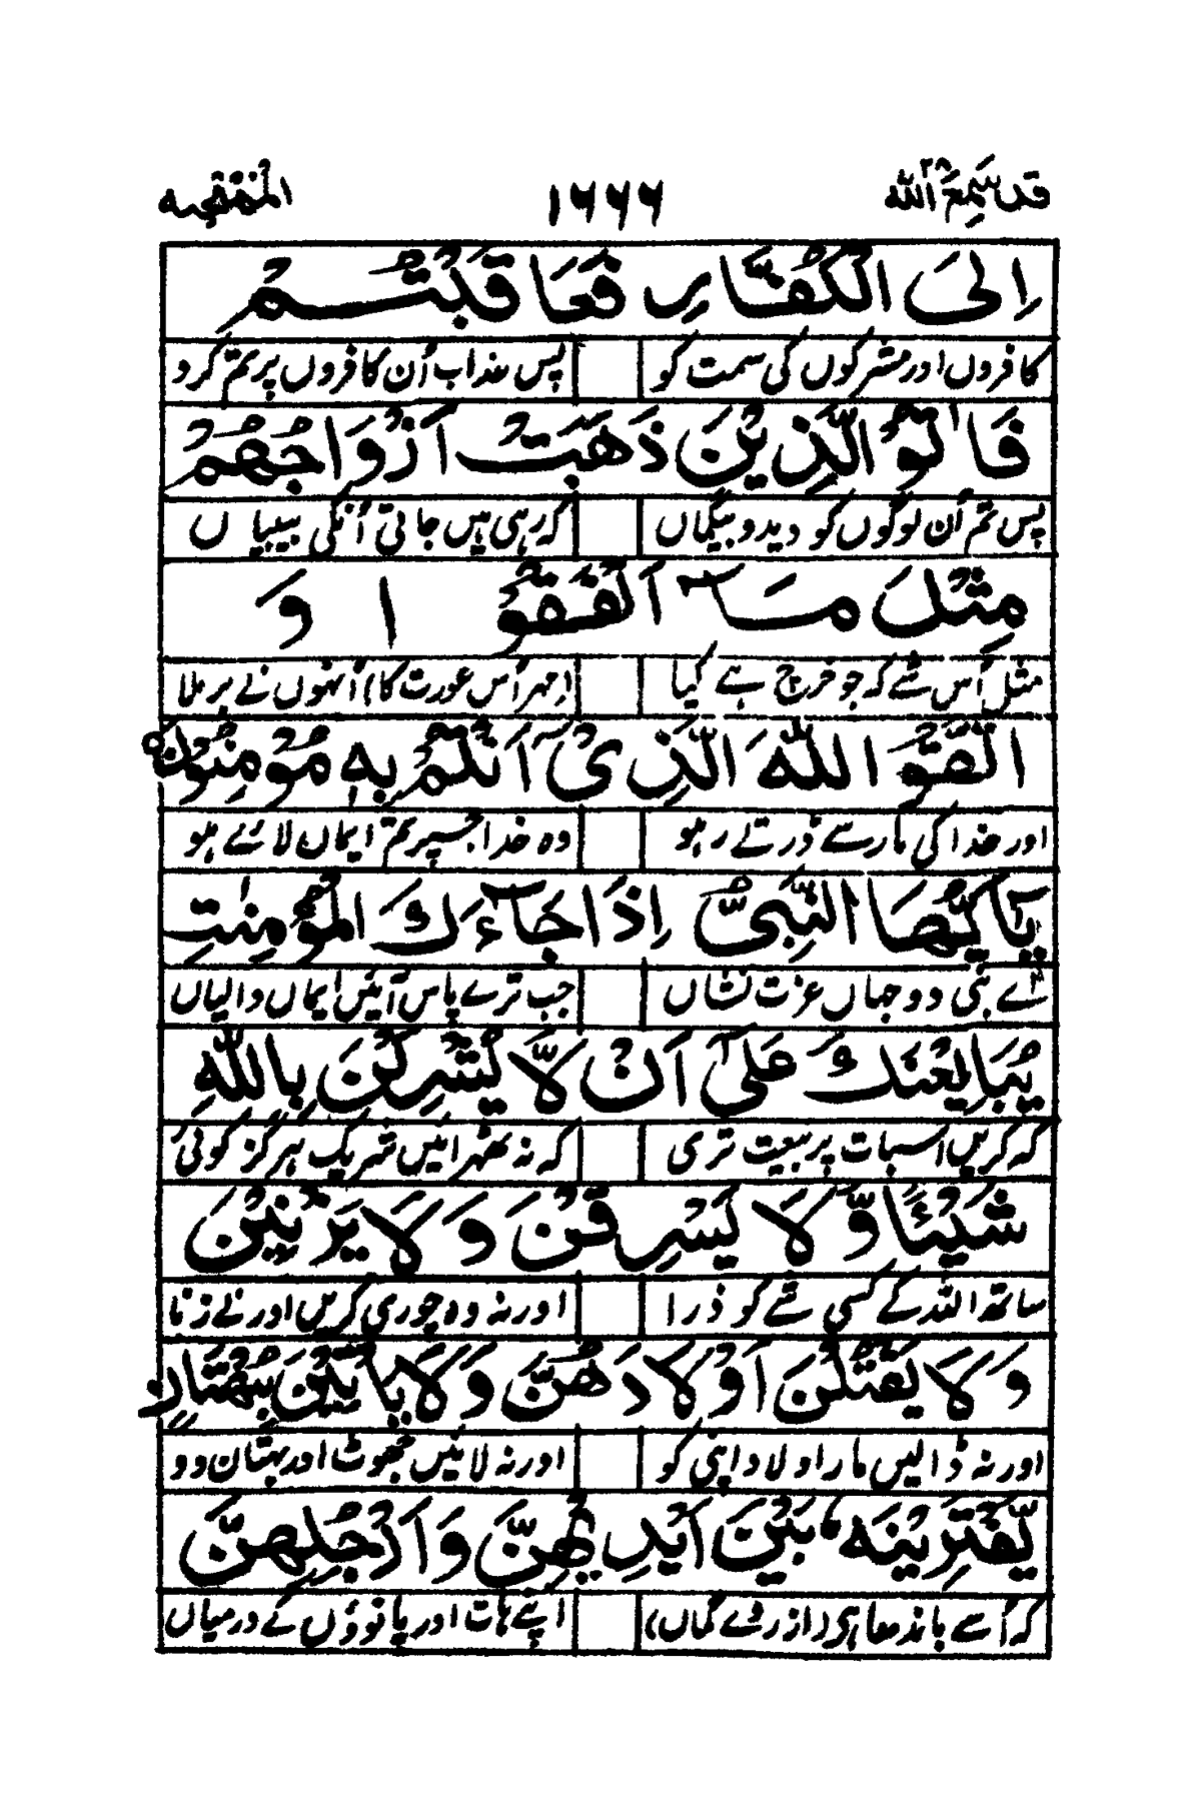 قد سمع الله ٢٨ ١٦٦٦ الممتحنه
اِلَى الْكُفَّارِ فَعَاقَبْتُمْ
کافروں اور مشرکوں کی سمت کو پس عذاب اُن کافروں پر تم کرو
فَاٰتُوا الَّذِيْنَ ذَهَبَتْ اَزْوَاجُهُمْ
پس تم اُن لوگوں کو دیدو بیگماں که رہی ہیں جاتی اُنکی بیبیاں
مِثْلَ مَآ اَنْفَقُوْا وَ
مثل اُس شے کہ جو خرچ ہے کیا (مہر اُس عورت کا) اُنہوں نے برملا
اتَّقُوا اللّٰهَ الَّذِىْٓ اَنْتُمْ بِهٖ مُؤْمِنُوْنَ
اور خدا کی مار سے ڈرتے رہو وہ خدا جسپر تم ایماں لائے ہو
يٰٓاَيُّهَا النَّبِىُّ اِذَا جَآءَكَ الْمُؤْمِنٰتِ
اے نبی دو جہاں عزت نشاں جب ترے پاس آئیں ایماں والیاں
يُبَايِعْنَكَ عَلٰٓى اَنْ لَّا يُشْرِكْنَ بِاللّٰهِ
که کریں اسبات پر بیعت تری که نہ ٹھہرائیں شریک ہرگز کوئی
شَيْئًا وَّلَا يَسْرِقْنَ وَلَا يَزْنِيْنَ
ساتھ اللہ کے کسی شے کو ذرا اور نہ وہ چوری کریں اور نے زنا
وَلَا يَقْتُلْنَ اَوْلَادَهُنَّ وَلَا يَاْتِيْنَ بِبُهْتَانٍ
اور نہ ڈالیں مار اولاد اپنی کو اور نہ لائیں جھوٹ اور بہتان دو
يَّفْتَرِيْنَهٗ بَيْنَ اَيْدِيْهِنَّ وَاَرْجُلِهِنَّ
که اُسے باندھا ہی (از روئے گماں) اپنے ہات اور پانوؤں کے درمیاں